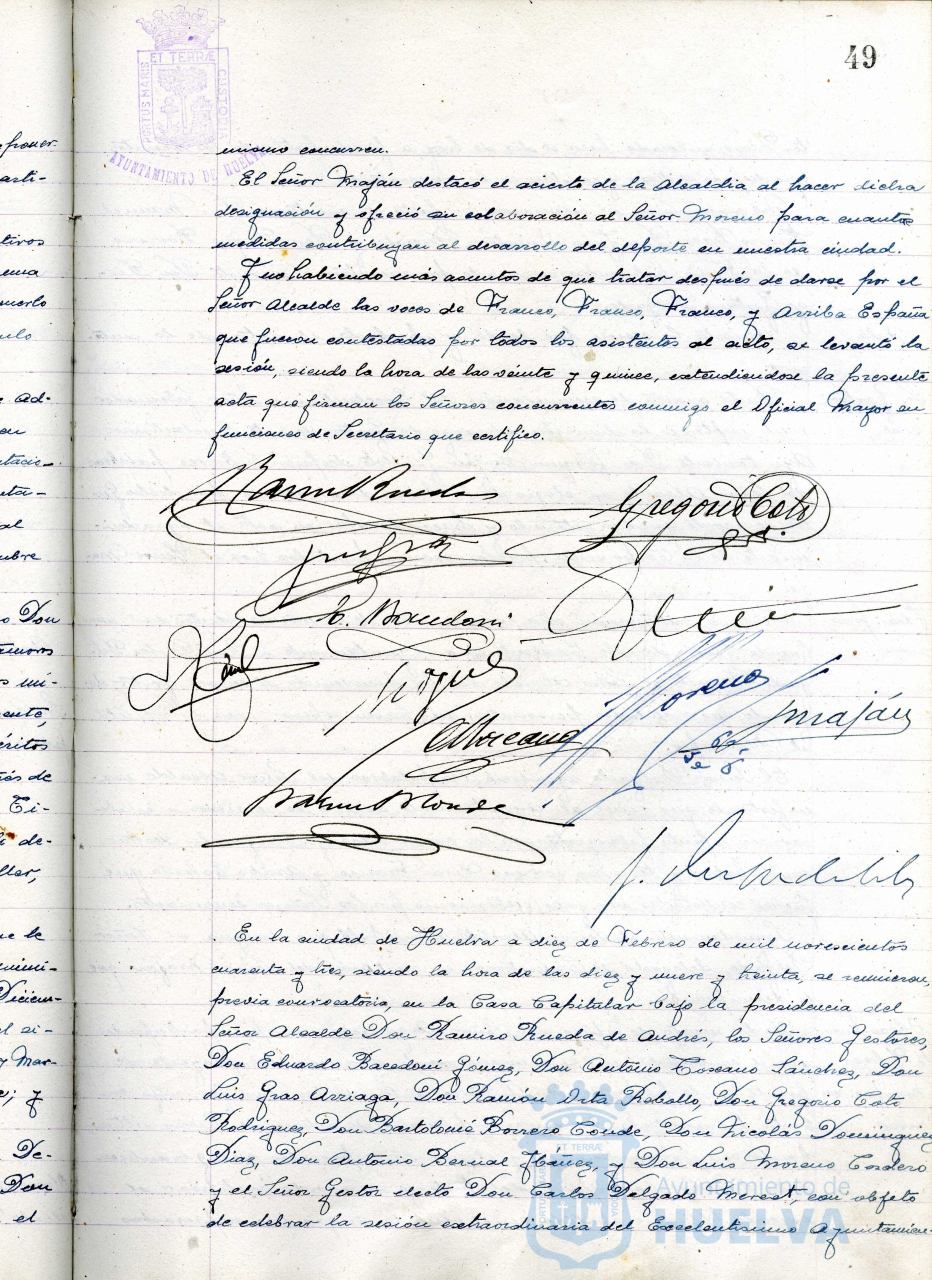 49
PORTUS MARIS ET TERRÆ CUSTODIA
AYUNTAMIENTO DE HUELVA
mismo concurren.
El Señor Maján destacó el acierto de la Alcaldia al hacer dicha
designación y ofreció su colaboración al Señor Moreno para cuantas
medidas contribuyan al desarrollo del deporte en nuestra ciudad.
Y no habiendo más asuntos de que tratar después de darse por el
Señor Alcalde las voces de Franco, Franco, Franco, y Arriba España
que fueron contestadas por todos los asistentes al acto, se levantó la
sesión, siendo la hora de las veinte y quince, extendiendose la presente
acta que firman los Señores concurrentes conmigo el Oficial Mayor en
funciones de Secretario que certifico.
Gregorio Coto
Moreno
Maján
En la ciudad de Huelva a diez de Febrero de mil novescientos
cuarenta y tres, siendo la hora de las diez y nueve y treinta, se reunieron,
previa convocatoria, en la Casa Capitular bajo la presidencia del
Señor Alcalde Don Ramiro Rueda de Andrés, los Señores Gestores,
Don Eduardo Bacedoni Gómez, Don Antonio Toscano Sánchez, Don
Luis Gras Arriaga, Don Ramón Orta Rebollo, Don Gregorio Coto
Rodriguez, Don Bartolomé Borrero Conde, Don Nicolás Dominguez
Diaz, Don Antonio Bernal Ibáñez, y Don Luis Moreno Cordero
y el Señor Gestor electo Don Carlos Delgado Merest, con objeto
de celebrar la sesión extraordinaria del Excelentisimo Ayuntamien-
Ayuntamiento de
HUELVA